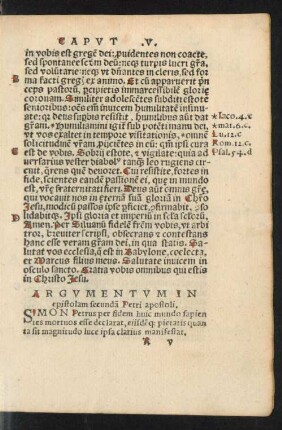 CAPVT .V.
in vobis est gregē dei: ꝓuidentes non coacte,
sed spontanee scďm deū: neqꝫ turpis lucri gr̄a,
sed volūtarie: neqꝫ vt dn̄antes in cleris, sed for
ma facti gregꝭ ex animo. Et cū apparuerit prin
ceps pastorū, percipietis immarcescibilē glorię
coronam. Similiter adolescētes subditi estote
senioribus: oēs aūt inuicem humilitatē insinua-
te: qꝛ deus suꝑbis resistit, humilibus aūt dat
gratiam. *Humiliamini igit sub potēti manu dei,
vt vos exaltet in tempore visitationis, *omnē
solicitudinē vr̄am, ꝓijciētes in eū: qm̄ ipsi cura
est de vobis. Sobrij estote, & vigilate: quia ad
uersarius vester diabolꝰ tanqꝫ leo rugiens cir
cuit, q̄rens quē deuoret. Cui resistite, fortes in
fide, scientes eandē passionē ei, que in mundo
est, vr̄ę fraternitati fieri. Deus aūt omnis gr̄ę,
qui vocauit nos in ęternā suā gloriā in Chr̄o
Jesu, modicū passos ipse ꝑficiet, ꝯfirmabit,
lidabitqꝫ. Ipsi gloria et imperiū in sęcula sęculoꝝ,
Amen. Per Siluanū fidelē fr̄em vobis, vt arbi
tror, breuiter scripsi, obsecrans ꝛ contestans
hanc esse veram gr̄am dei, in qua statis. Salu
tat vos ecclesia, q̄ est in Babylone, coelecta,
ꝛ Marcus filius meus. Salutate inuicem in
osculo sancto. Gratia vobis omnibus qui estis
in Christo Jesu.
*Iaco.4.c
*mat.6.c.
Lu.12.c
Rom.12.c.
Psal.54.d
B
C
D
ARGVMENTVM IN
epistolam secundā Petri apostoli.
SIMON Petrus per fidem huic mundo sapien
tes mortuos esse declarat, eiusdēqꝫ pietatis quan
ta sit magnitudo luce ipsa clarius manifestat.
R v